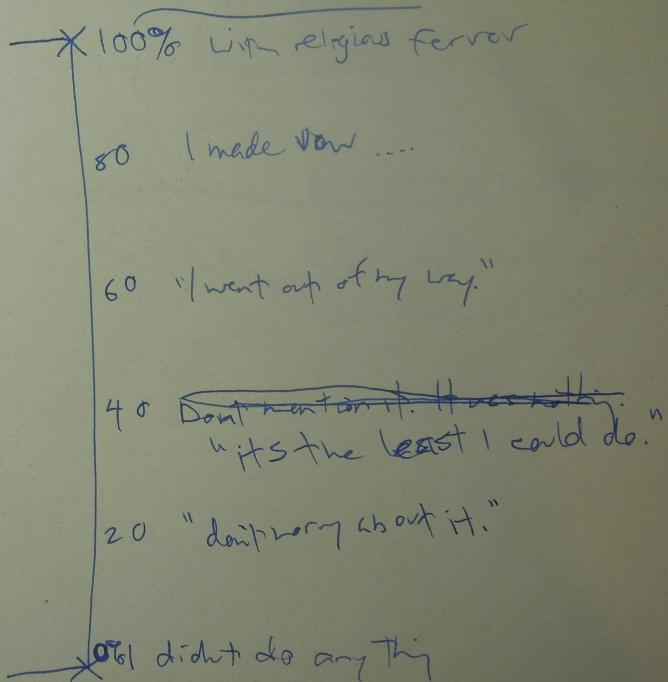 100% with religious fervor
80 I made vow ....
60 "I went out of my way."
40 Dont mention it. It was nothing.
"its the least I could do."
20 "don't worry about it."
0% I didnt do any thing